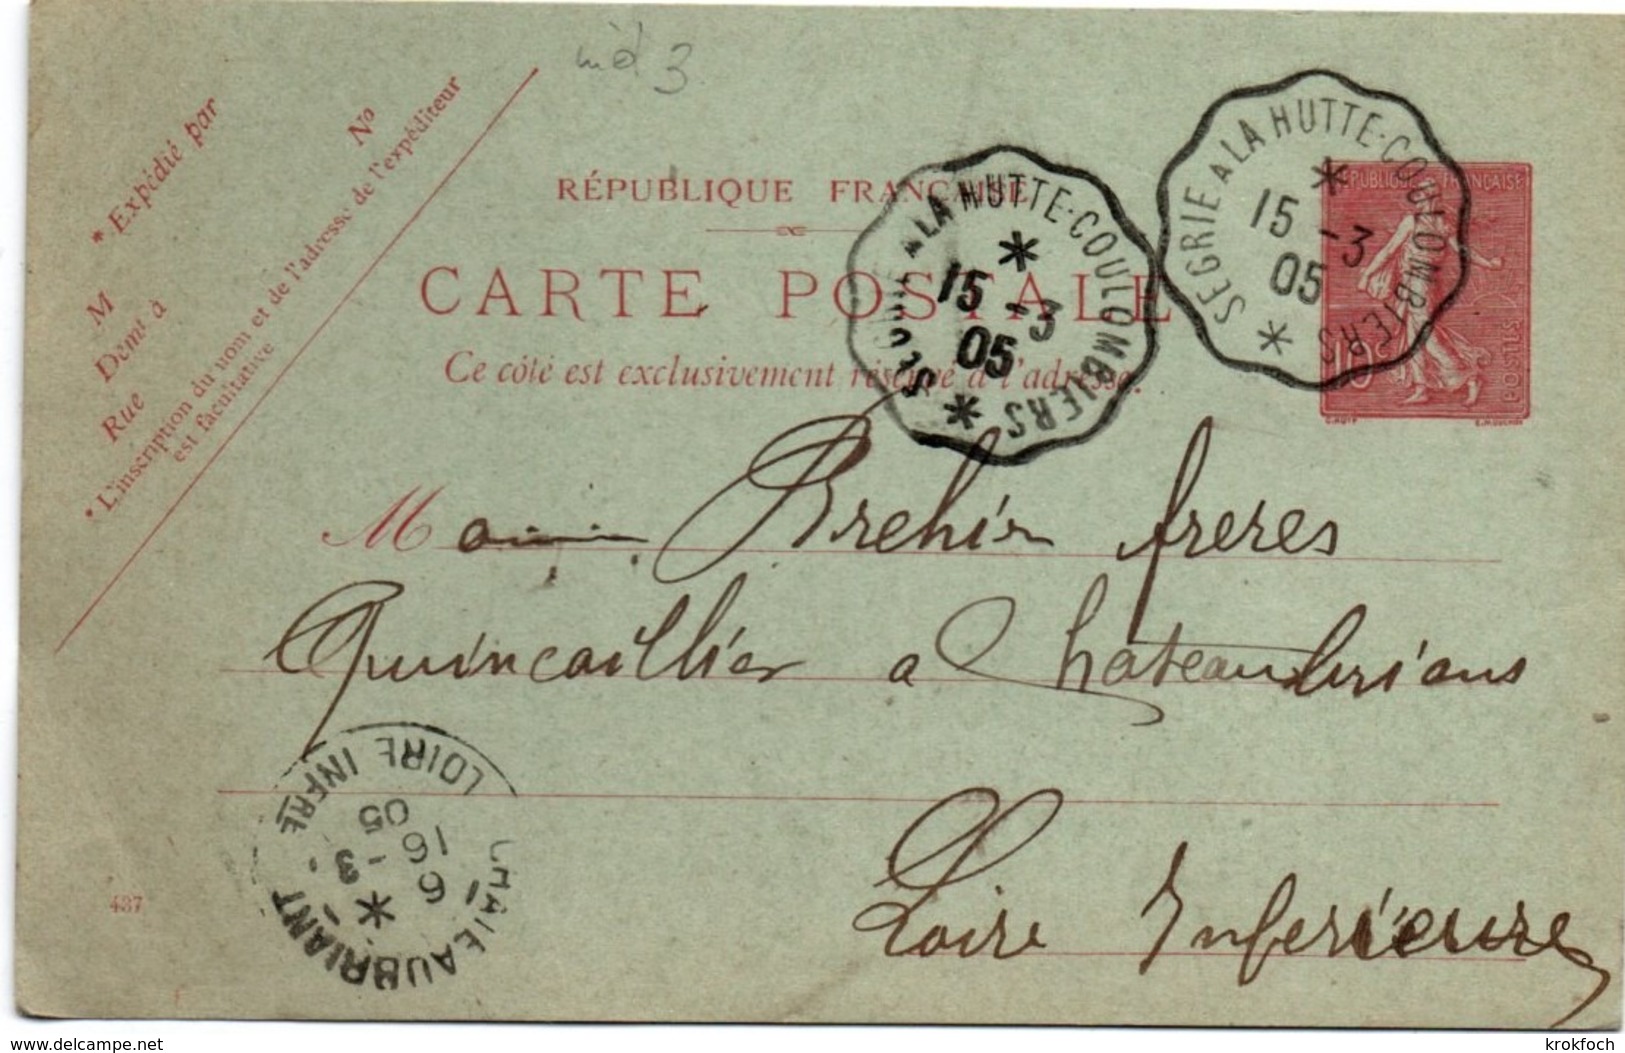 mèd 3
* Expédié par
No
M
Demt à
Rue
* L'inscription du nom et de l'adresse de l'expéditeur
est facultative
RÉPUBLIQUE FRANÇAISE
CARTE POSTALE
Ce côté est exclusivement réservé à l'adresse.
SEGRIE A LA HUTTE-COULOMBIERS
15 -3
05
SEGRIE A LA HUTTE-COULOMBIERS
15 -3
05
REPUBLIQUE FRANÇAISE
10c
POSTES
O.ROTY
E.MOUCHON
M Brehier freres
Quincaillier a Chateaubrians
Loire Inferieure
CHATEAUBRIANT
6
16 -3
05
LOIRE INFRE
487
delcampe.net
krokfoch